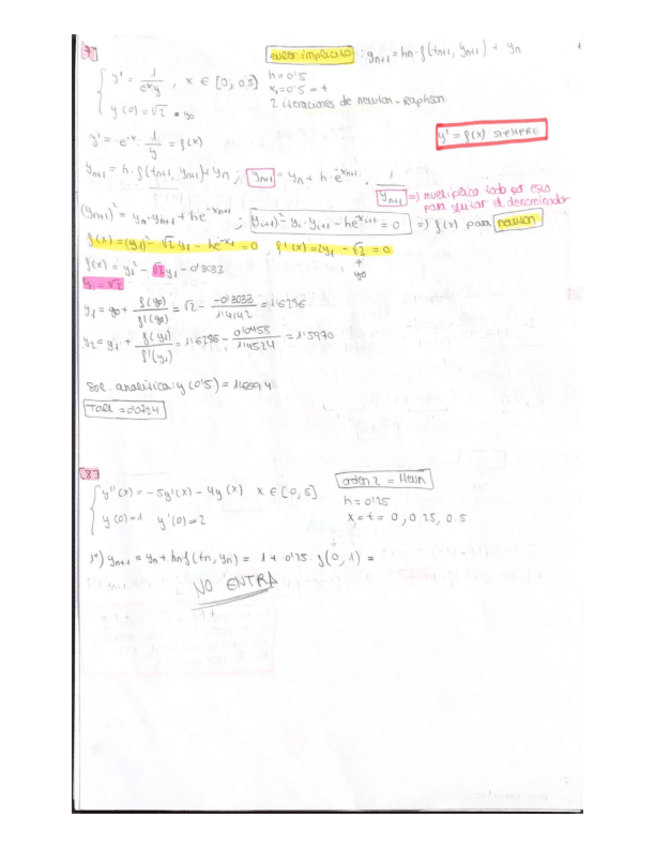 7
euler implícito : yn+1 = hn · f(tn+1, yn+1) + yn
y' = 1/e^x y , x ∈ [0, 0'5]
h = 0'5
x1 = 0'5 = t
y(0) = √2 = y0
2 iteraciones de newton-Raphson
y' = e^-x · 1/y = f(x)
y' = f(x) SIEMPRE
yn+1 = h · f(tn+1, yn+1) + yn ; yn+1 = yn + h · e^-xn+1 · 1/yn+1 => multiplico todo por esto para quitar el denominador
(yn+1)² = yn · yn+1 + he^-xn+1 ; (yi+1)² - yi · yi+1 - he^-xi+1 = 0 => f(x) para newton
f(x) = (y1)² - √2 y1 - he^-x1 = 0 , f'(x) = 2y1 - √2 = 0
y0
f(x) = y1² - √2 y1 - 0'3033
y0 = √2
y1 = y0 + f(y0)/f'(y0) = √2 - -0'3033/1'4142 = 1'6286
y2 = y1 + f(y1)/f'(y1) = 1'6286 - 0'0458/1'4524 = 1'5970
Sol. analítica: y(0'5) =
8
y''(x) = -5y'(x) - 4y(x) x ∈ [0, 5]
orden 2 = Heun
h = 0'25
y(0) = 1 y'(0) = 2
x = t = 0, 0.25, 0.5
1º) yn+1 = yn + hn f(tn, yn) = 1 + 0'25 · f(0, 1) =
NO ENTRA